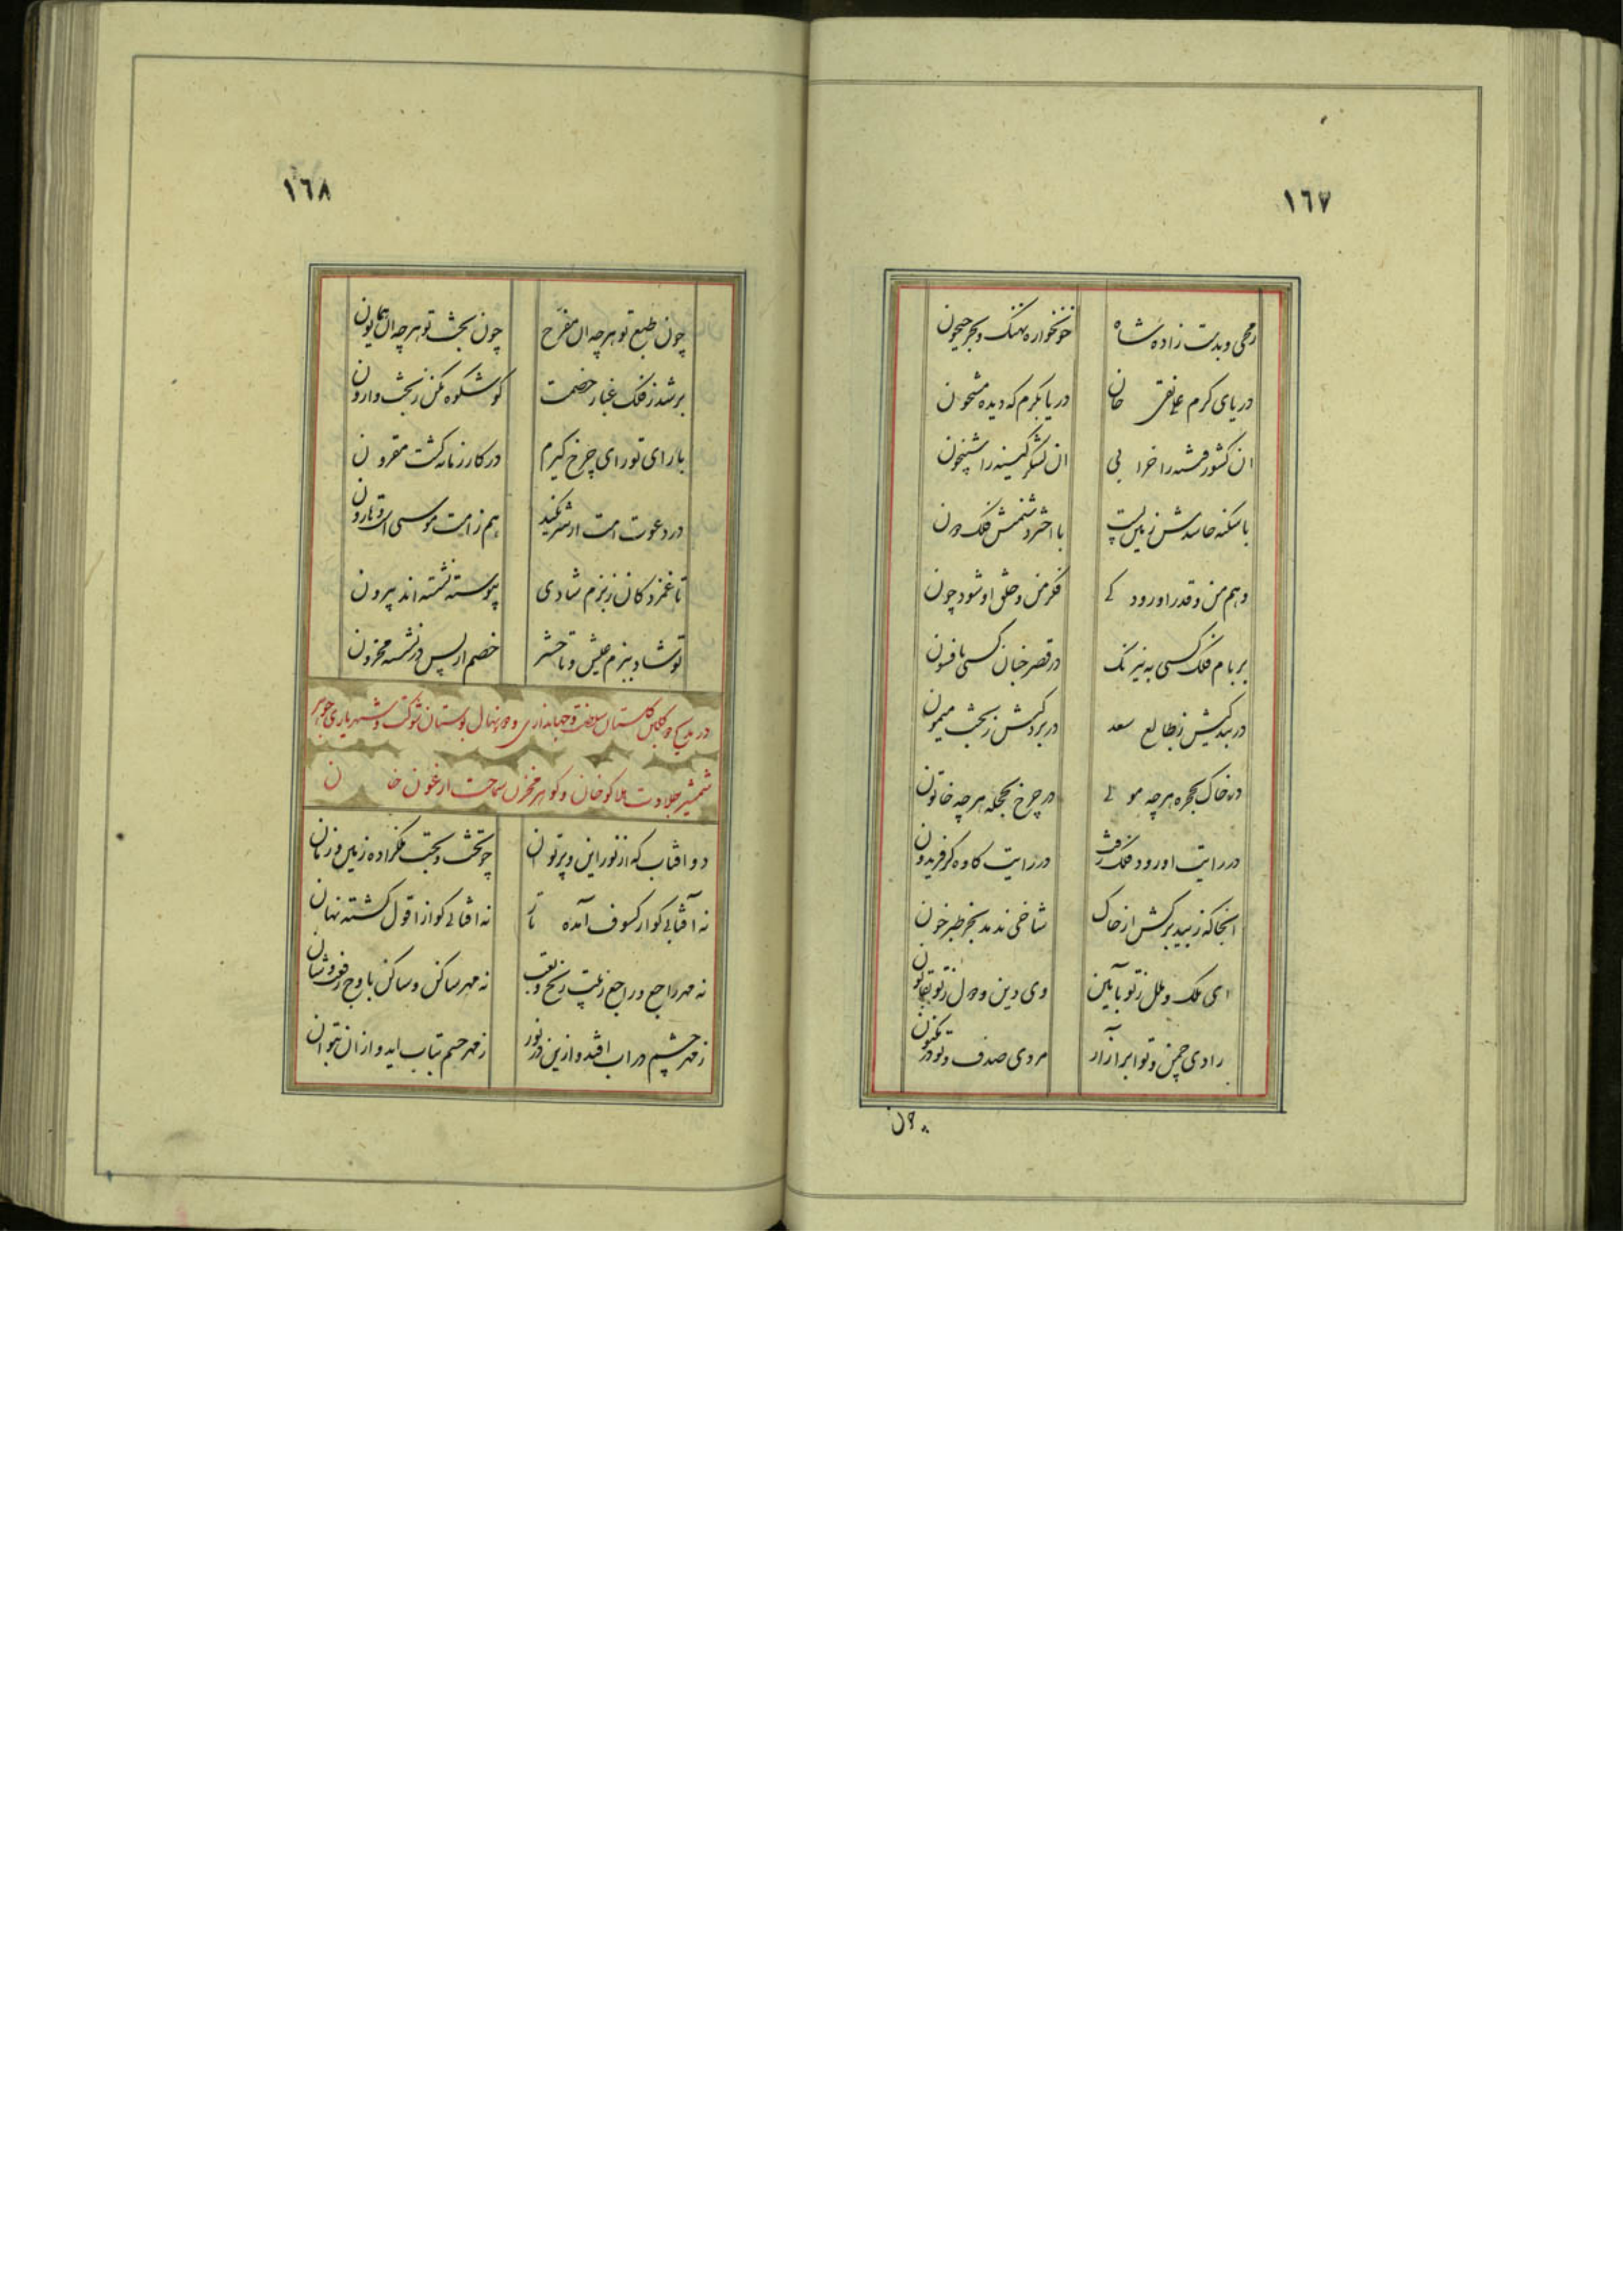 ١٦٧
رمحی و بدست زاده شاه
خونخواره نهنک و بحر جیحون
دریای کرم علینقی خان
دریا بکرم که دیده مشحون
ان کشور فتنه را خرابی
ان لشکر کینه را شبیخون
با سکنه حاسدش زمین پست
با اخترد شمنش فلک دون
وهم من و قدر او رود کی
فکر من و خلق او شود چون
بر بام فلک کسی به نیرنک
در قصر جنان کسی بافسون
در بندکیش ز طالع سعد
در بردکیش ز بخت میمون
در خاک بحجره هرچه مولی
در چرخ بحجله هرچه خاتون
در رایت او رود فلک رفت
در رایت کاوه کر فریدون
انجا که ز بید برکش از خاک
شاخی ندمد بجز طبرخون
ای ملک و ملل ز تو بآیین
وی دین و دول ز تو بقانون
رادی چمن و تو ابر آزار
مردی صدف و تو در مکنون
چون
١٦٨
چون طبع تو هرچه ال مفرح
چون بخت تو هرچه ال همایون
بر شد ز فلک غبار خصمت
کو شکوه مکن ز بخت وارون
با رای تو رای چرخ کیرم
در کار زمانه کشت مقرون
در دعوت امت ار شریکند
هم ز امت موسی است و هارون
تا غمزدکان ز بزم شادی
پیوسته نشسته اند بیرون
تو شاد ببزم عیش و تا حشر
خصم از پس در نشسته محزون
در مدیح دو کلبن کلستان سلطنت و جهانداری و دو نهال بوستان شوکت و شهریاری جوهر
شمشیر جلادت هلاکو خان و کوهر مخزن سماحت ارغون خان
دو افتاب که از نور این و پرتو ان
چو تخت و بخت ملکزاده زمین و زمان
نه آفتابی کو از کسوف آمده تار
نه افتابی کو از افول کشته نهان
نه مهر راجع و راجع ز غیب رنج و تعب
نه مهر ساکن و ساکن باوج رفعت و شان
ز مهر چشم در اب افتد و ازین در نور
ز مهر جسم بتاب اید و از ان بتوان